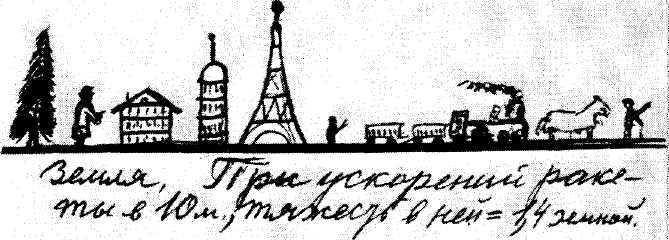 Земля, При ускорений раке-
ты в 10м., тяжесть в ней = 1,4 земной.